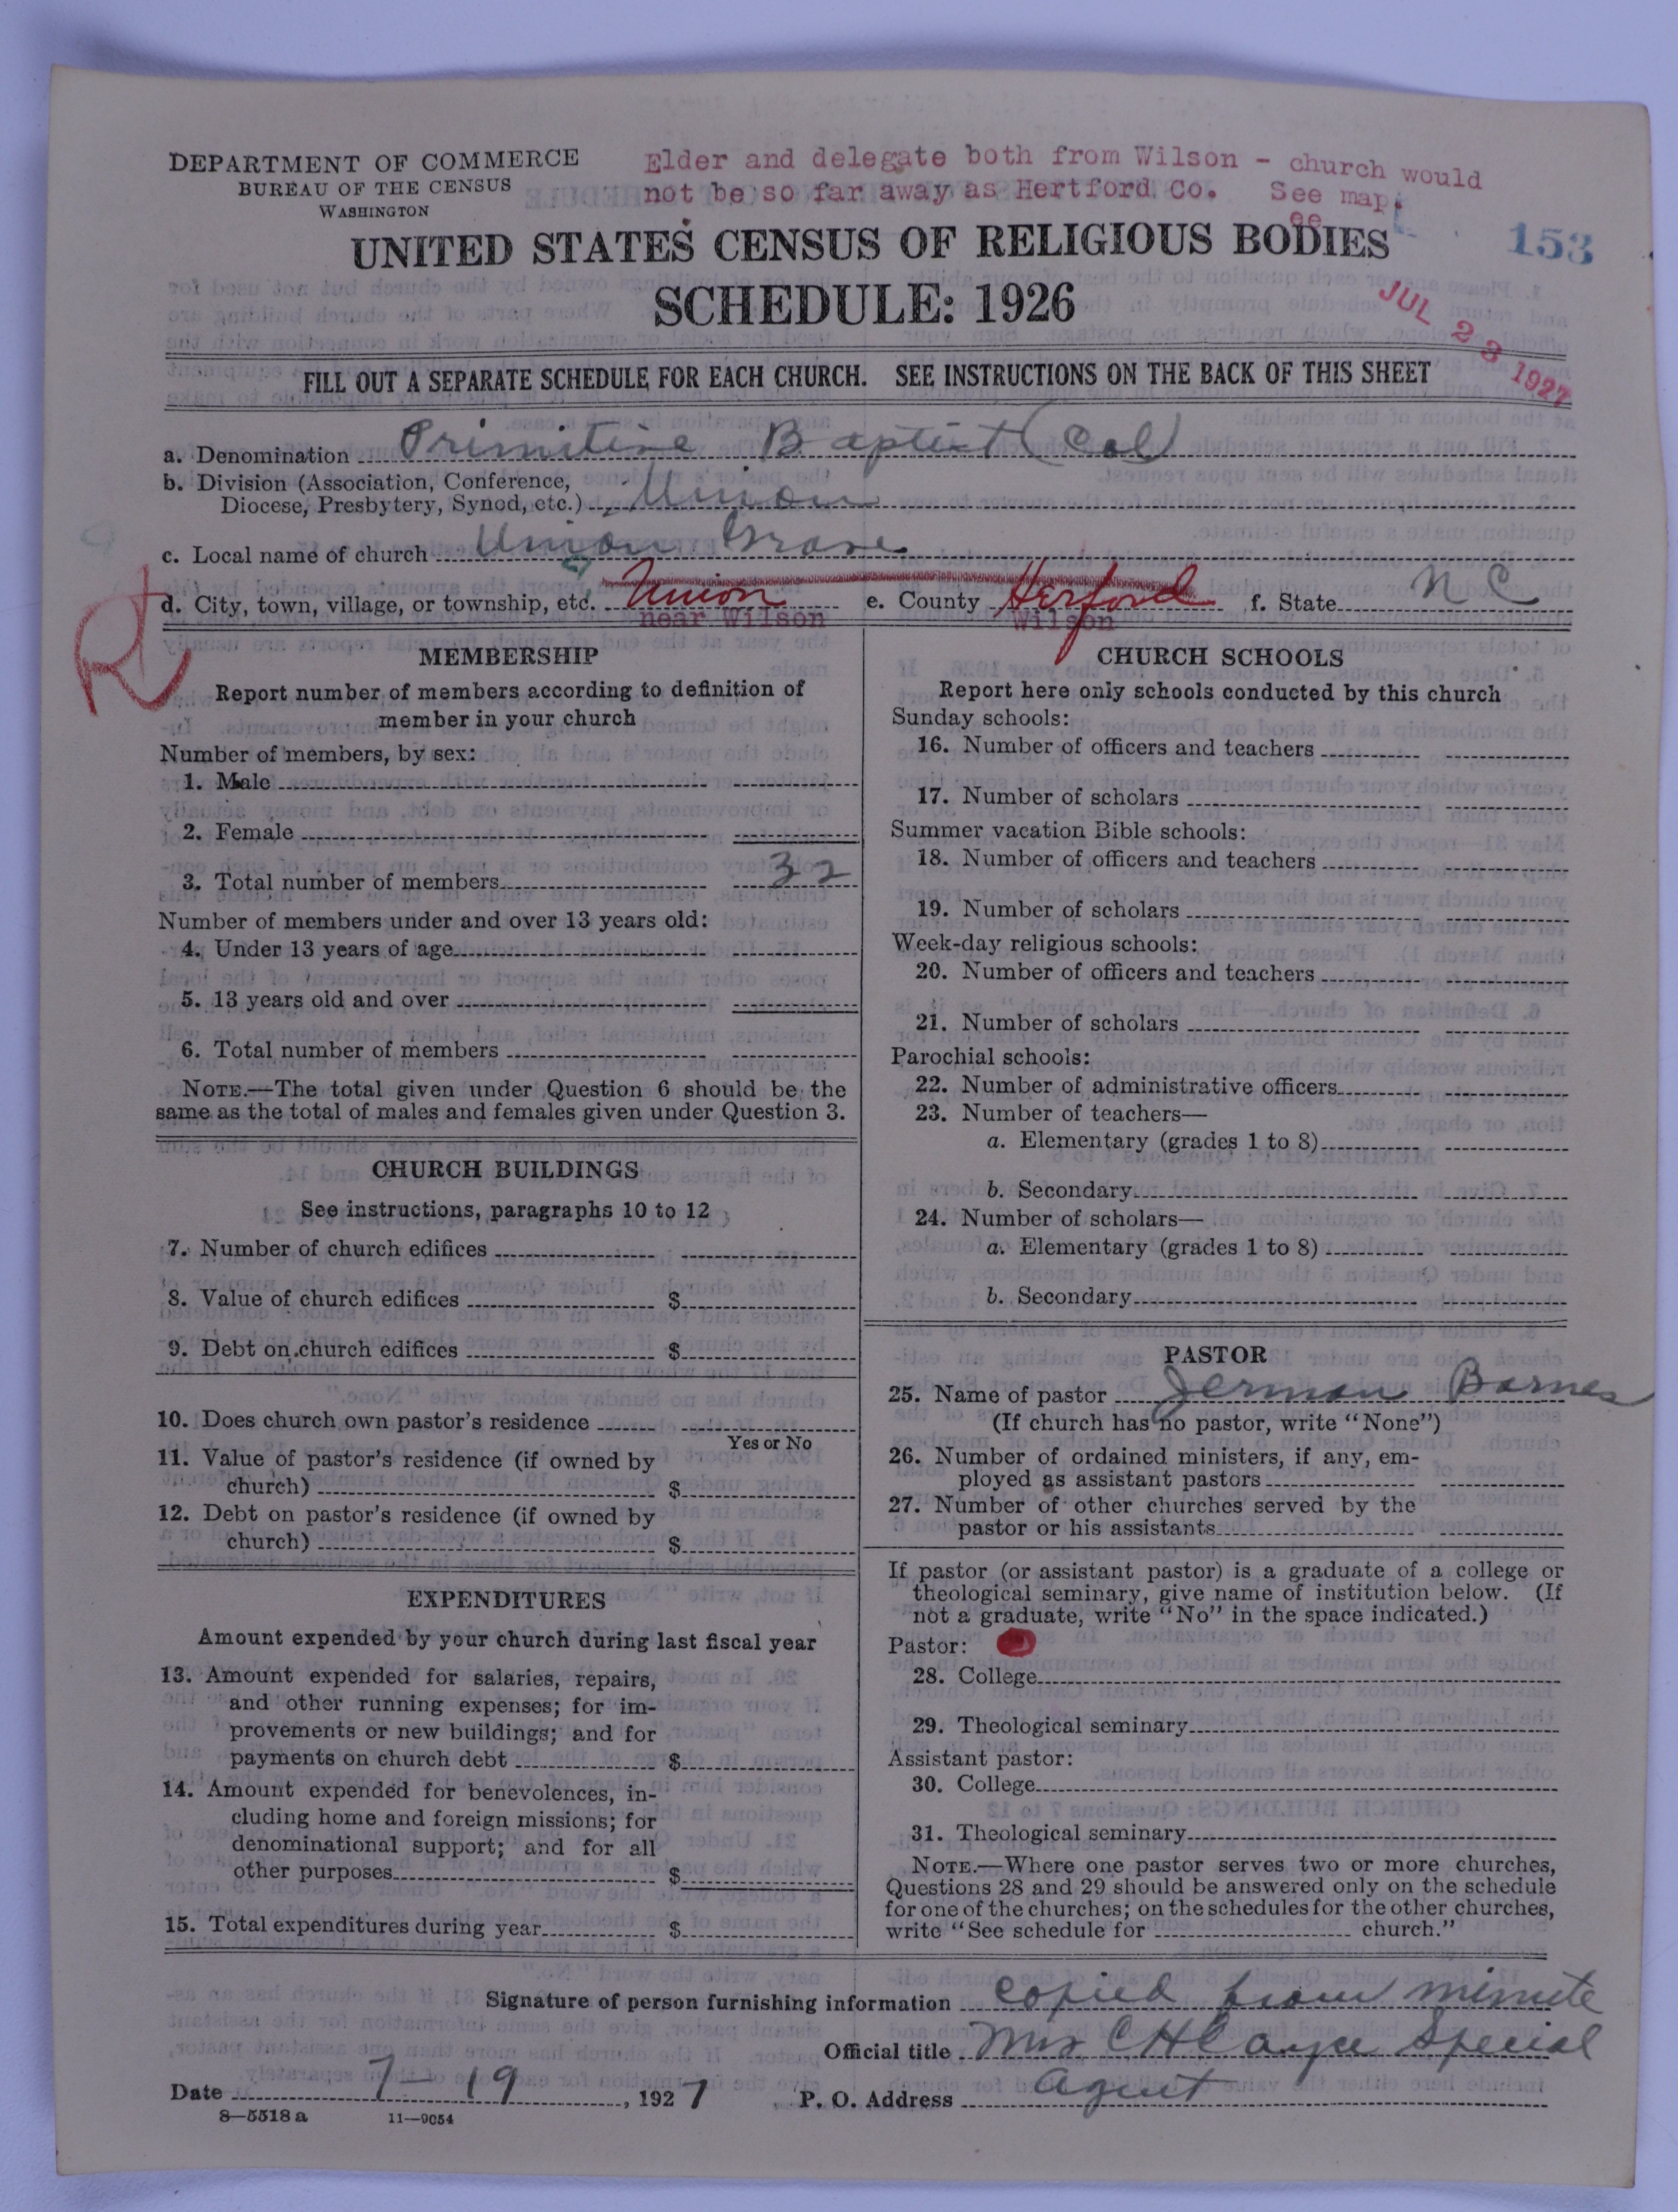 DEPARTMENT OF COMMERCE
BUREAU OF THE CENSUS
WASHINGTON
Elder and delegate both from Wilson - church would
not be so far away as Hertford Co. See map.
ee
153
UNITED STATES CENSUS OF RELIGIOUS BODIES
SCHEDULE: 1926
JUL 23 1927
FILL OUT A SEPARATE SCHEDULE FOR EACH CHURCH. SEE INSTRUCTIONS ON THE BACK OF THIS SHEET
a. Denomination Primitive Baptist (Col)
b. Division (Association, Conference,
Diocese, Presbytery, Synod, etc.) Union
c. Local name of church Union Grove
d. City, town, village, or township, etc. Union e. County Herford f. State N C
near Wilson Wilson
R
MEMBERSHIP
Report number of members according to definition of
member in your church
Number of members, by sex:
1. Male
2. Female
3. Total number of members 32
Number of members under and over 13 years old:
4. Under 13 years of age
5. 13 years old and over
6. Total number of members
NOTE.—The total given under Question 6 should be the
same as the total of males and females given under Question 3.
CHURCH BUILDINGS
See instructions, paragraphs 10 to 12
7. Number of church edifices
8. Value of church edifices $
9. Debt on church edifices $
10. Does church own pastor's residence
Yes or No
11. Value of pastor's residence (if owned by
church) $
12. Debt on pastor's residence (if owned by
church) $
EXPENDITURES
Amount expended by your church during last fiscal year
13. Amount expended for salaries, repairs,
and other running expenses; for im-
provements or new buildings; and for
payments on church debt $
14. Amount expended for benevolences, in-
cluding home and foreign missions; for
denominational support; and for all
other purposes $
15. Total expenditures during year $
CHURCH SCHOOLS
Report here only schools conducted by this church
Sunday schools:
16. Number of officers and teachers
17. Number of scholars
Summer vacation Bible schools:
18. Number of officers and teachers
19. Number of scholars
Week-day religious schools:
20. Number of officers and teachers
21. Number of scholars
Parochial schools:
22. Number of administrative officers
23. Number of teachers—
a. Elementary (grades 1 to 8)
b. Secondary
24. Number of scholars—
a. Elementary (grades 1 to 8)
b. Secondary
PASTOR
25. Name of pastor Jerman Barnes
(If church has no pastor, write "None")
26. Number of ordained ministers, if any, em-
ployed as assistant pastors
27. Number of other churches served by the
pastor or his assistants
If pastor (or assistant pastor) is a graduate of a college or
theological seminary, give name of institution below. (If
not a graduate, write "No" in the space indicated.)
Pastor:
28. College
29. Theological seminary
Assistant pastor:
30. College
31. Theological seminary
NOTE.—Where one pastor serves two or more churches,
Questions 28 and 29 should be answered only on the schedule
for one of the churches; on the schedules for the other churches,
write "See schedule for church."
Signature of person furnishing information copied from minute
Official title Mrs C H Cayce Special
Date 7-19, 1927 P. O. Address Agent
8-5518a 11-9054